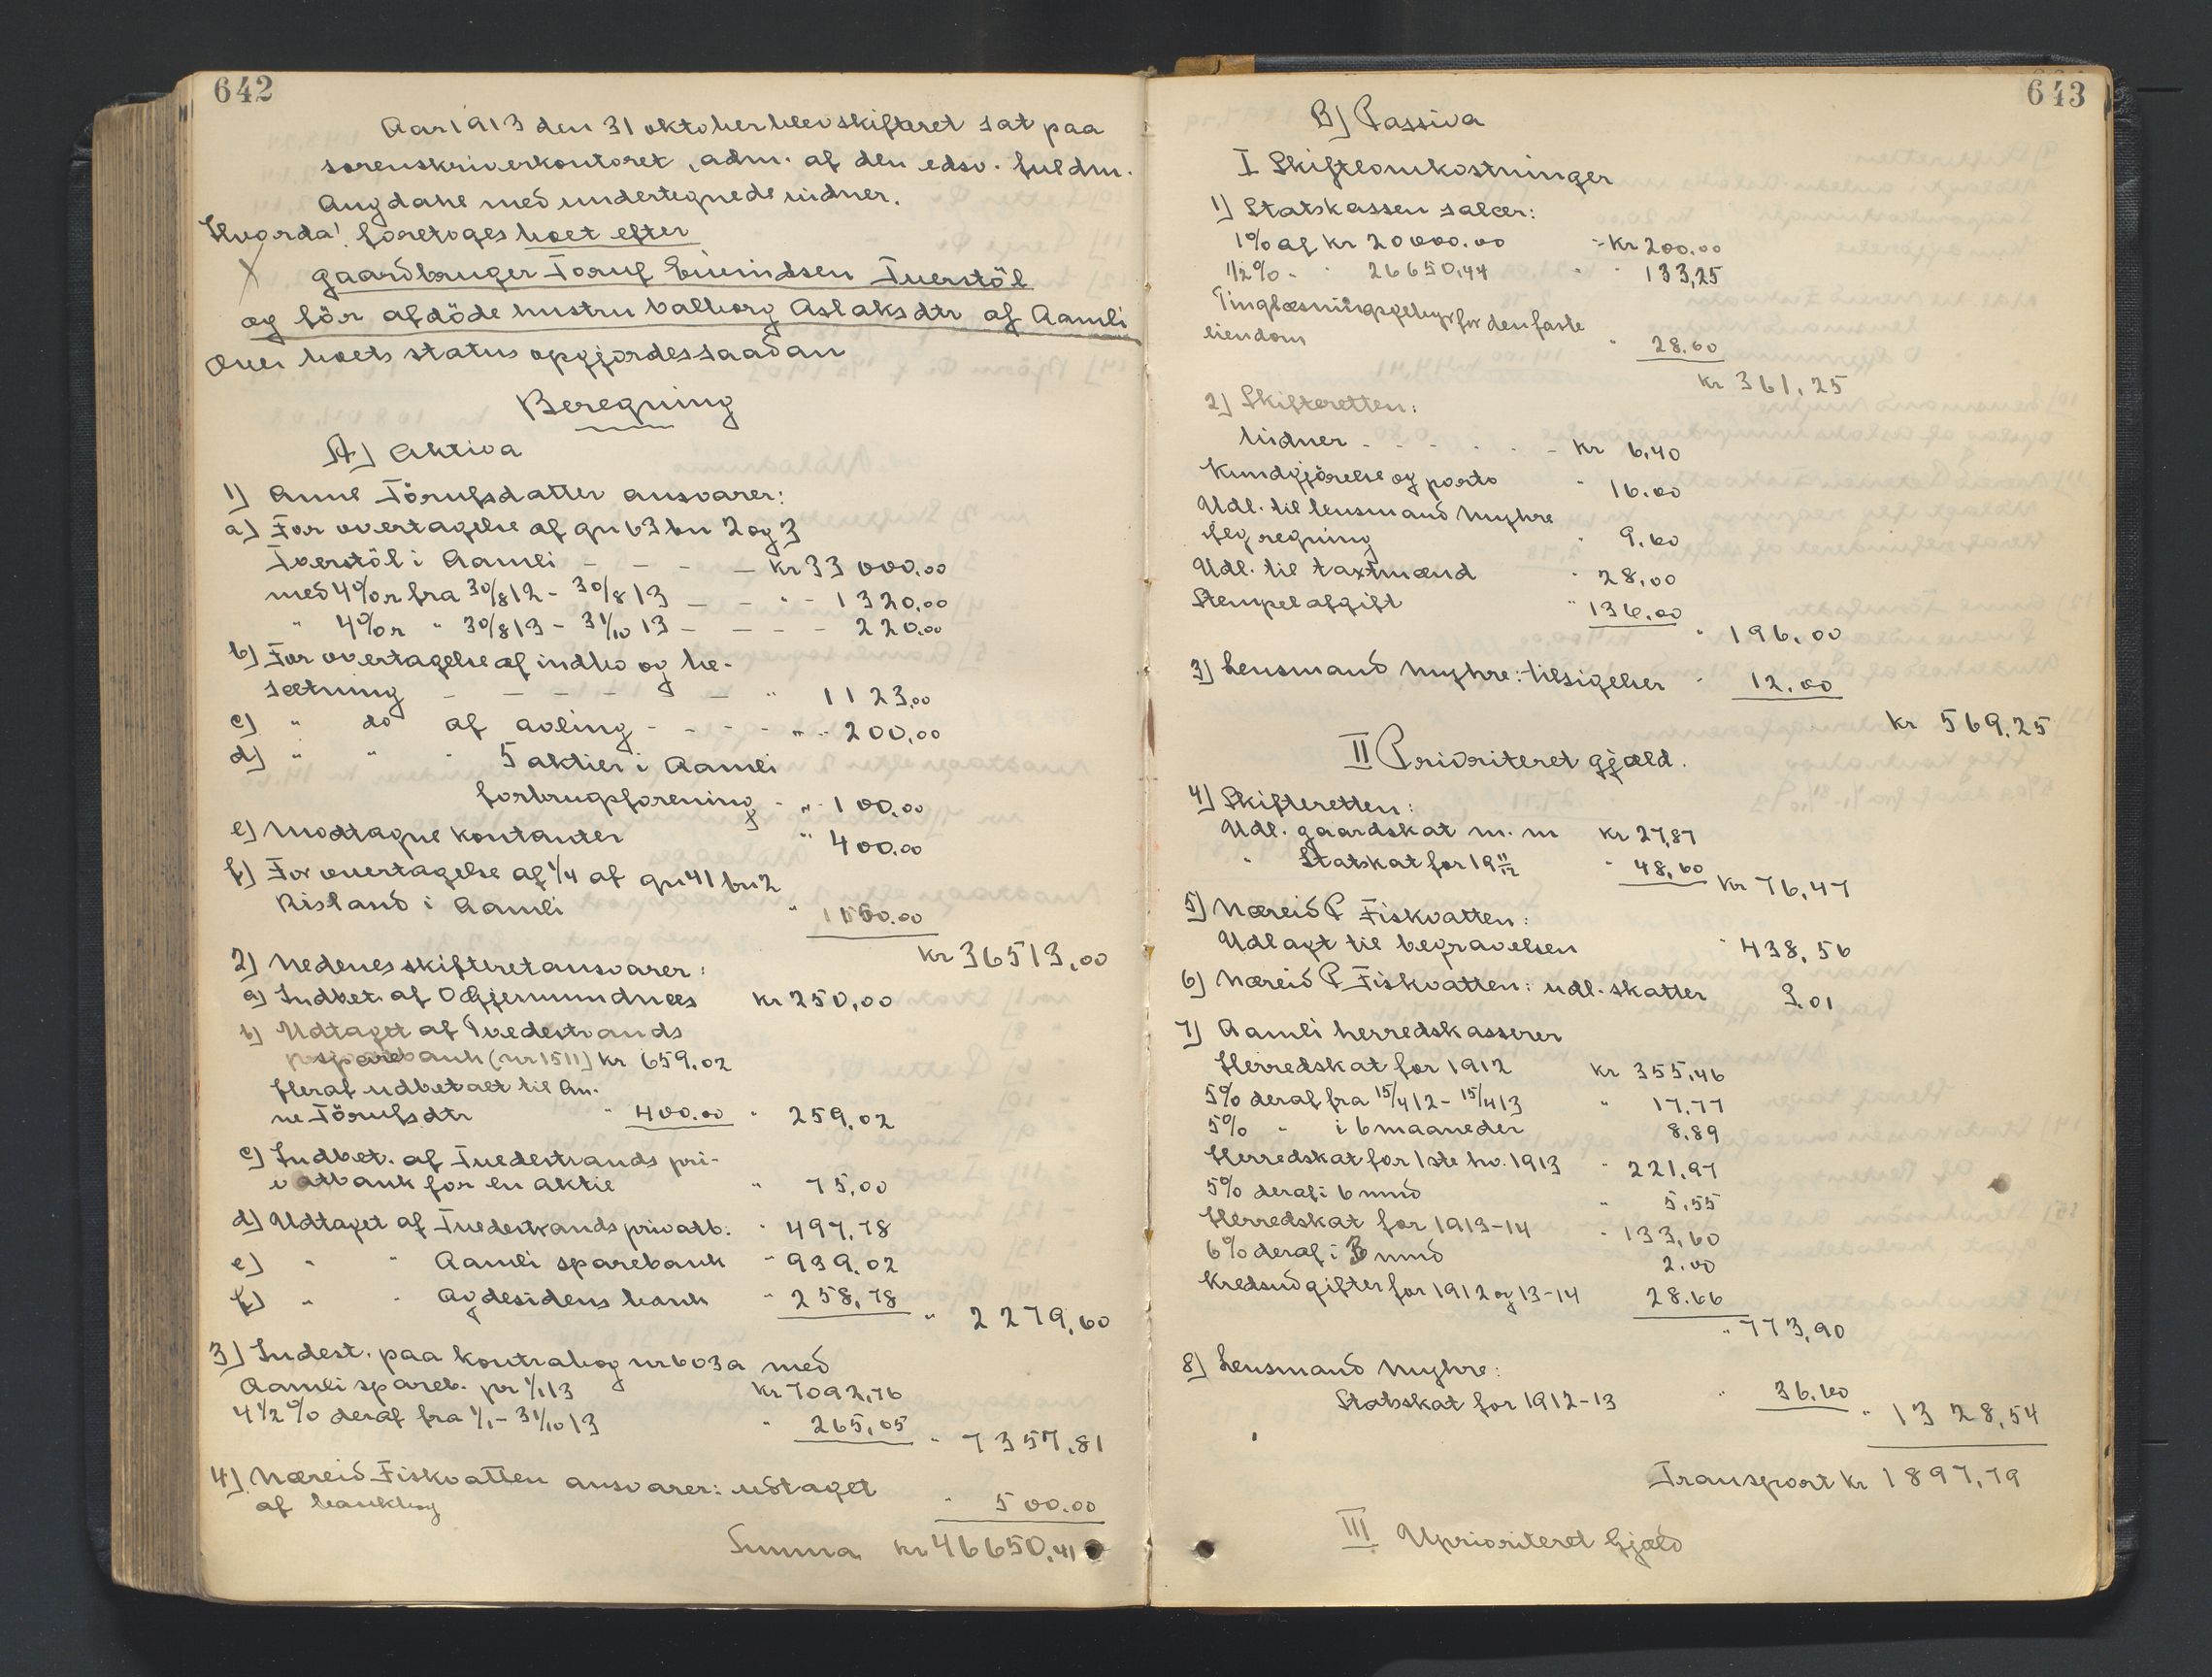 642
Aar 1913 den 31 oktober blev skifteret sat paa
sorenskriverkontoret, adm. af den edsv. fuldm.
Aug dahl med undertegnede vidner.
Hvorda! foretoges boet efter
gaardbruger Toruf Eivindsen Tverstöl
og för afdöde hustru Valborg Aslaksdtr af Aamli
Over boets status opgjordes saadan
Beregning
A) Aktiva
1) Anne Törufsdatter ansvarer:
a) For overtagelse af gn 63 bn 2 og 3
Tverstöl i Aamli - - - - kr 33 000.00
med 4% r fra 30/8 12 - 30/8 13 - - " - 1320.00
" 4% r " 30/8 13 - 31/10 13 - - - - 220.00
b) For overtagelse af indbo og be-
sætning - - - - - " 1123,00
c) " do af avling - - - - " - 200,00
d) " " " 5 aktier i Aamli
forbrugsforening - " - 100.00
e) Modtagne kontanter " 400.00
f) For overtagelse af 1/4 af gn 41 bn 2
Risland i Aamli " 150.00
kr 36513,00
2) Nedenes skifteret ansvarer:
a) Indbet. af O Gjermundnes kr 250,00
b) Udtaget af Tvedestrands
sparebank (nr 1511) kr 659.02
Heraf udbetalt til An-
ne Törufsdtr " 400.00 " 259,02
c) Indbet. af Tvedestrands pri-
vatbank for en aktie " 75,00
d) Udtaget af Tvedestrands privatb. " 497,78
e) " " Aamli sparebank " 939.02
f) " " Agdesidens bank " 258,78 " 2279,60
3) Indest. paa kontrabog nr 603a med
Aamli spareb. pr 1/1 13 kr 7092,76
4 1/2 % deraf fra 1/1 - 31/10 13 " 265,05 " 7357.81
4) Næreid Fiskvatten ansvarer: udtaget
af bankbog " 500.00
Summa kr 46650,41
643
B) Passiva
I Skifteomkostninger
1) Statskassen salær:
1% af kr 20000.00 - kr 200.00
1/2% - " 26650,44 " " 133,25
Tinglæsningsgebyr for den faste
eiendom " 28.00
kr 361,25
2) Skifteretten:
Vidner - - - - - - kr 6,40
Kundgjörelse og porto " 16.00
Udl. til lensmand Myhre
flg regning " 9.60
Udl. til taxtmænd " 28,00
Stempelafgift " 136.00
" 196.00
3) Lensmand Myhre: tilsigelser " 12.00
kr 569.25
II Prioriteret gjæld.
4) Skifteretten:
Udl. gaardskat m. m kr 27,87
" Statskat for 19 11/12 " 48,60 kr 76,47
5) Næreid P Fiskvatten:
Udlagt til begravelsen " 438,56
6) Næreid P Fiskvatten: udl. skatter 3.01
7) Aamli herredskasserer
Herredskat for 1912 kr 355,46
5% deraf fra 15/4 12 - 15/4 13 " 17.77
5% " i 6 maaneder 8.89
Herredskat for 1ste hv. 1913 " 221,97
5% deraf i 6 mnd " 5,55
Herredskat for 1913-14 " 133,60
6% deraf i 3 mnd 2.00
Kredsudgifter for 1912 og 13-14 28.66
" 773,90
8) Lensmand Myhre:
Statskat for 1912-13 " 36.60 " 1328,54
Transport kr 1897,79
III Uprioriteret Gjæld